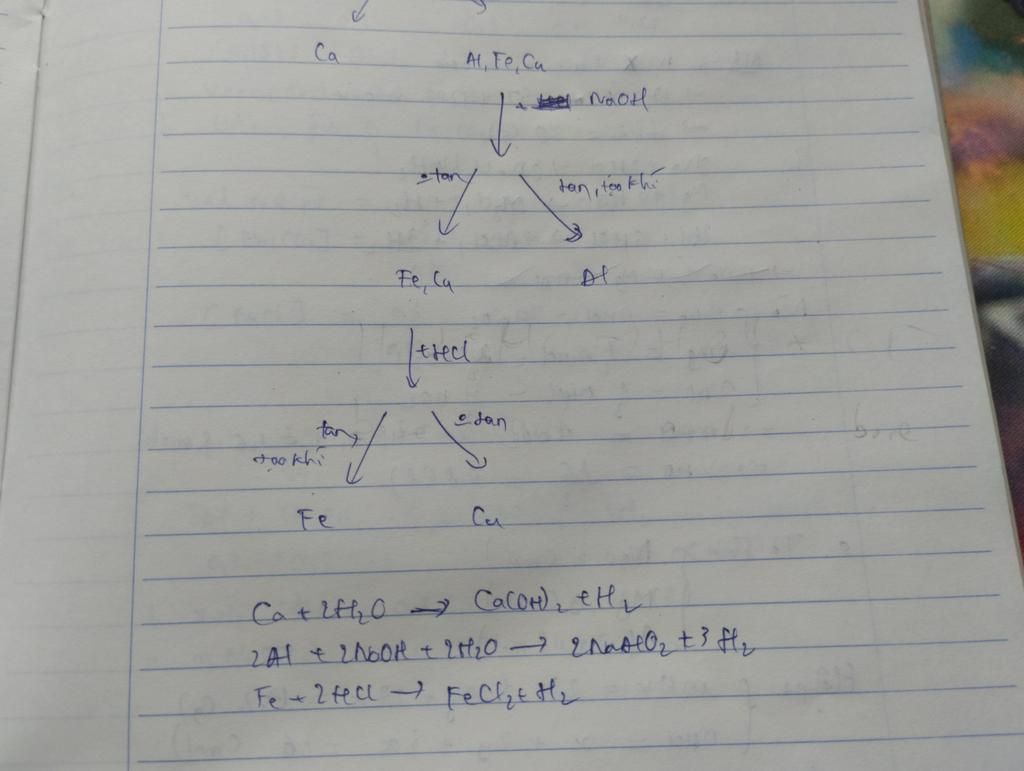 Ca Al, Fe, Cu
+ NaOH
o tan tan, tạo khí
Fe, Cu Al
+HCl
tan, o tan
tạo khí
Fe Cu
Ca + 2H₂O → Ca(OH)₂ + H₂
2Al + 2NaOH + 2H₂O → 2NaAlO₂ + 3H₂
Fe + 2HCl → FeCl₂ + H₂